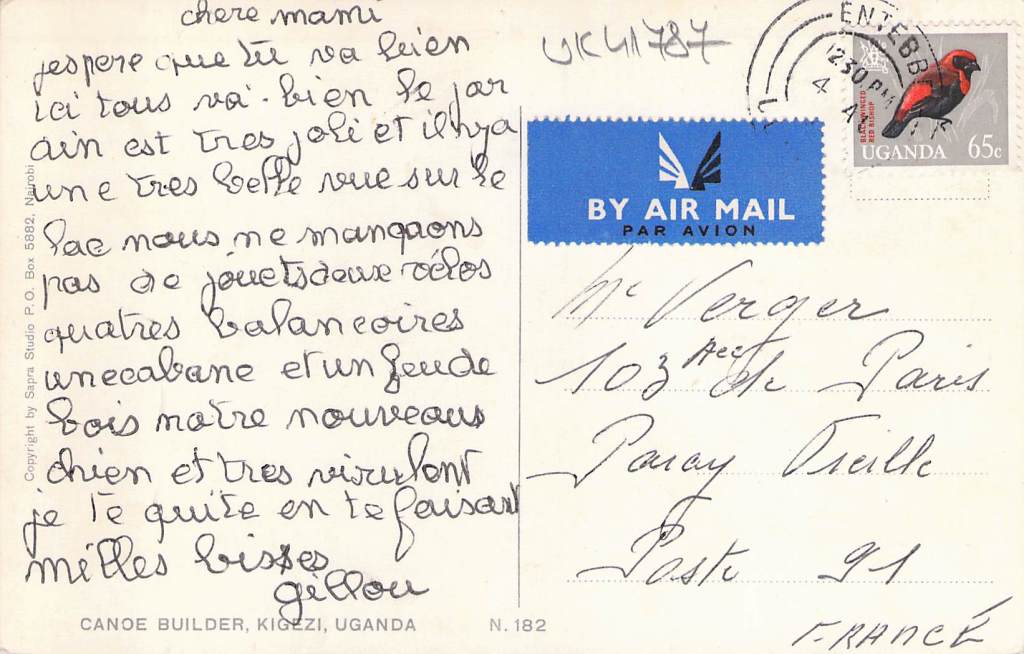 chere mami
jespere que tu va bien
ici tous va bien le jar
ain est tres joli et il nya
une tres belle vue sur le
lac nous ne manqaons
pas de jouets deux vélos
quatres balancoires
unecabane et un feude
bois notre nouveaus
chien et tres virulant
je te quite en te faisant
milles bisses
gillou
CANOE BUILDER, KIGEZI, UGANDA N. 182
Copyright by Sapra Studio P.O. Box 5882, Nairobi
UK41787
ENTEBBE
1230 PM
4
BLACKWINGED
RED BISHOP
UGANDA 65c
BY AIR MAIL
PAR AVION
Mc Verger
103 de Paris
Paray Vieille
Poste 91
FRANCE